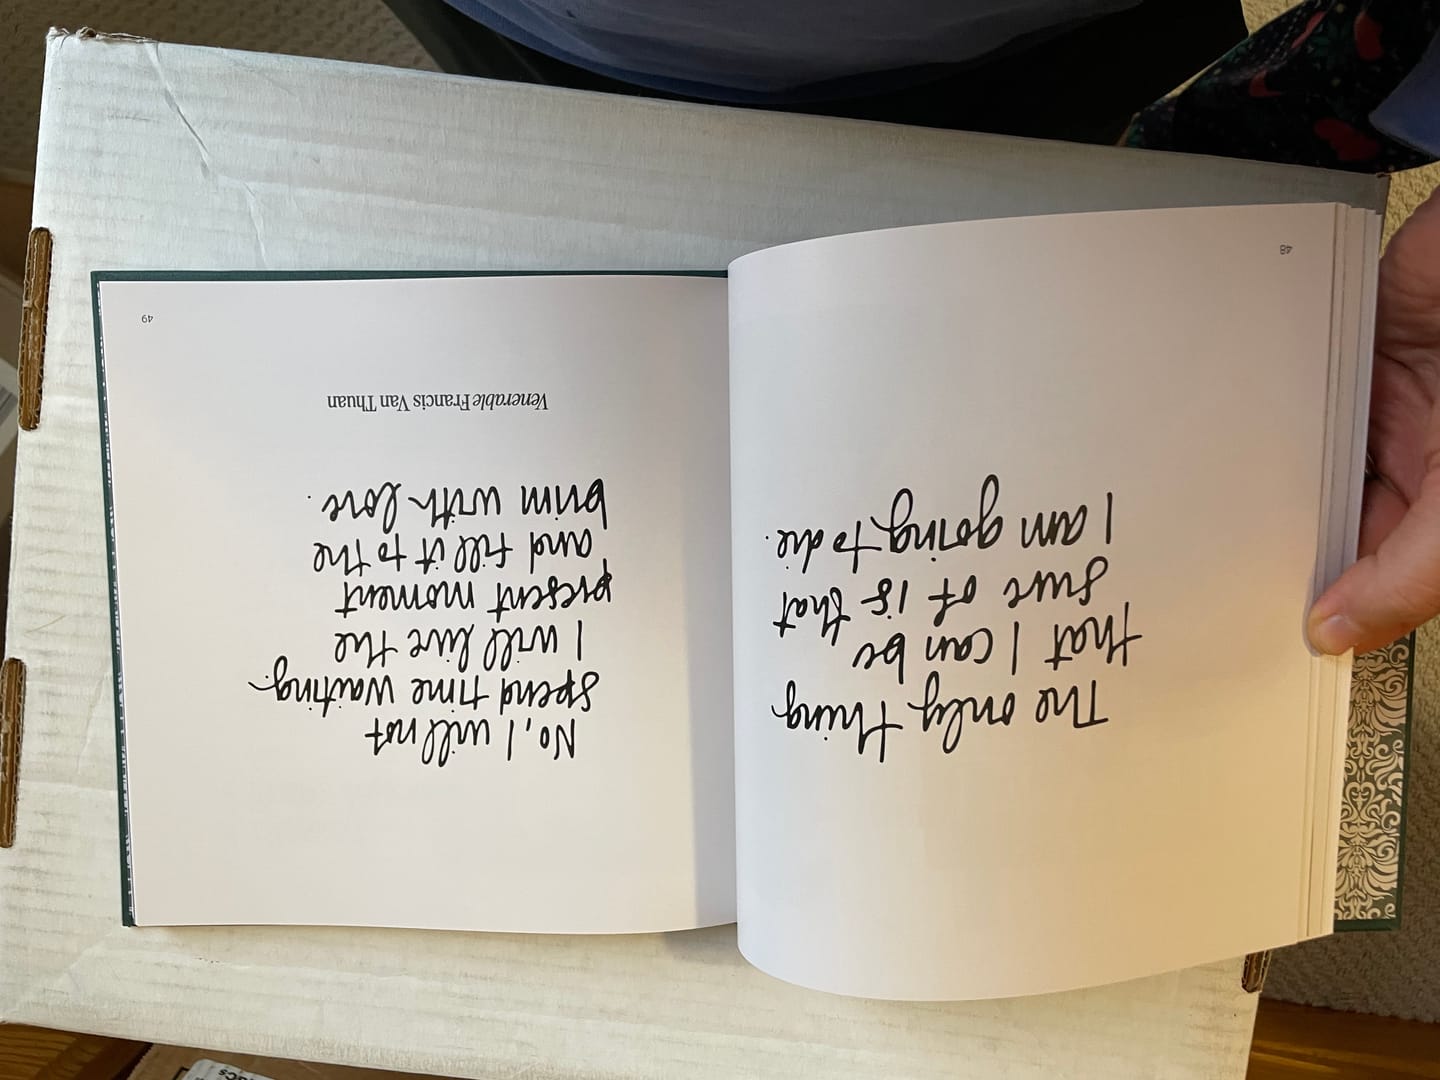 The only thing
that I can be
sure of is that
I am going to die.
48
No, I will not
spend time waiting.
I will live the
present moment
and fill it to the
brim with love.
Venerable Francis Van Thuan
49